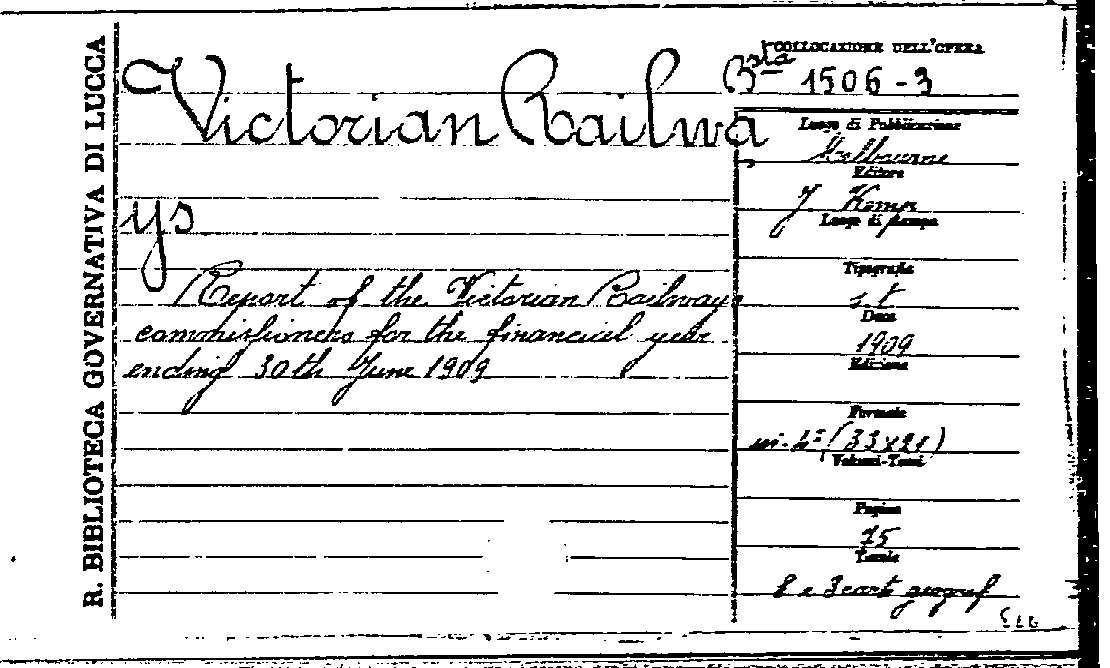 R. BIBLIOTECA GOVERNATIVA DI LUCCA
Victorian Railwa
ys
Report of the Victorian Railways
commissioners for the financial year
ending 30th June 1909
COLLOCAZIONE DELL'OPERA
Bsta 1506-3
Luogo di Pubblicazione
Melbourne
Editore
J Kemp
Luogo di stampa
Tipografia
s.t
Data
1909
Edizione
Formato
in-4° (33x21)
Volumi-Tomi
Pagine
75
Tavole
e 3 cart geograf